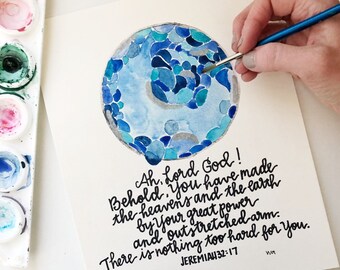 Ah, Lord God!
Behold, You have made
the heavens and the earth
by your great power
and outstretched arm.
There is nothing too hard for You.
JEREMIAH 32:17